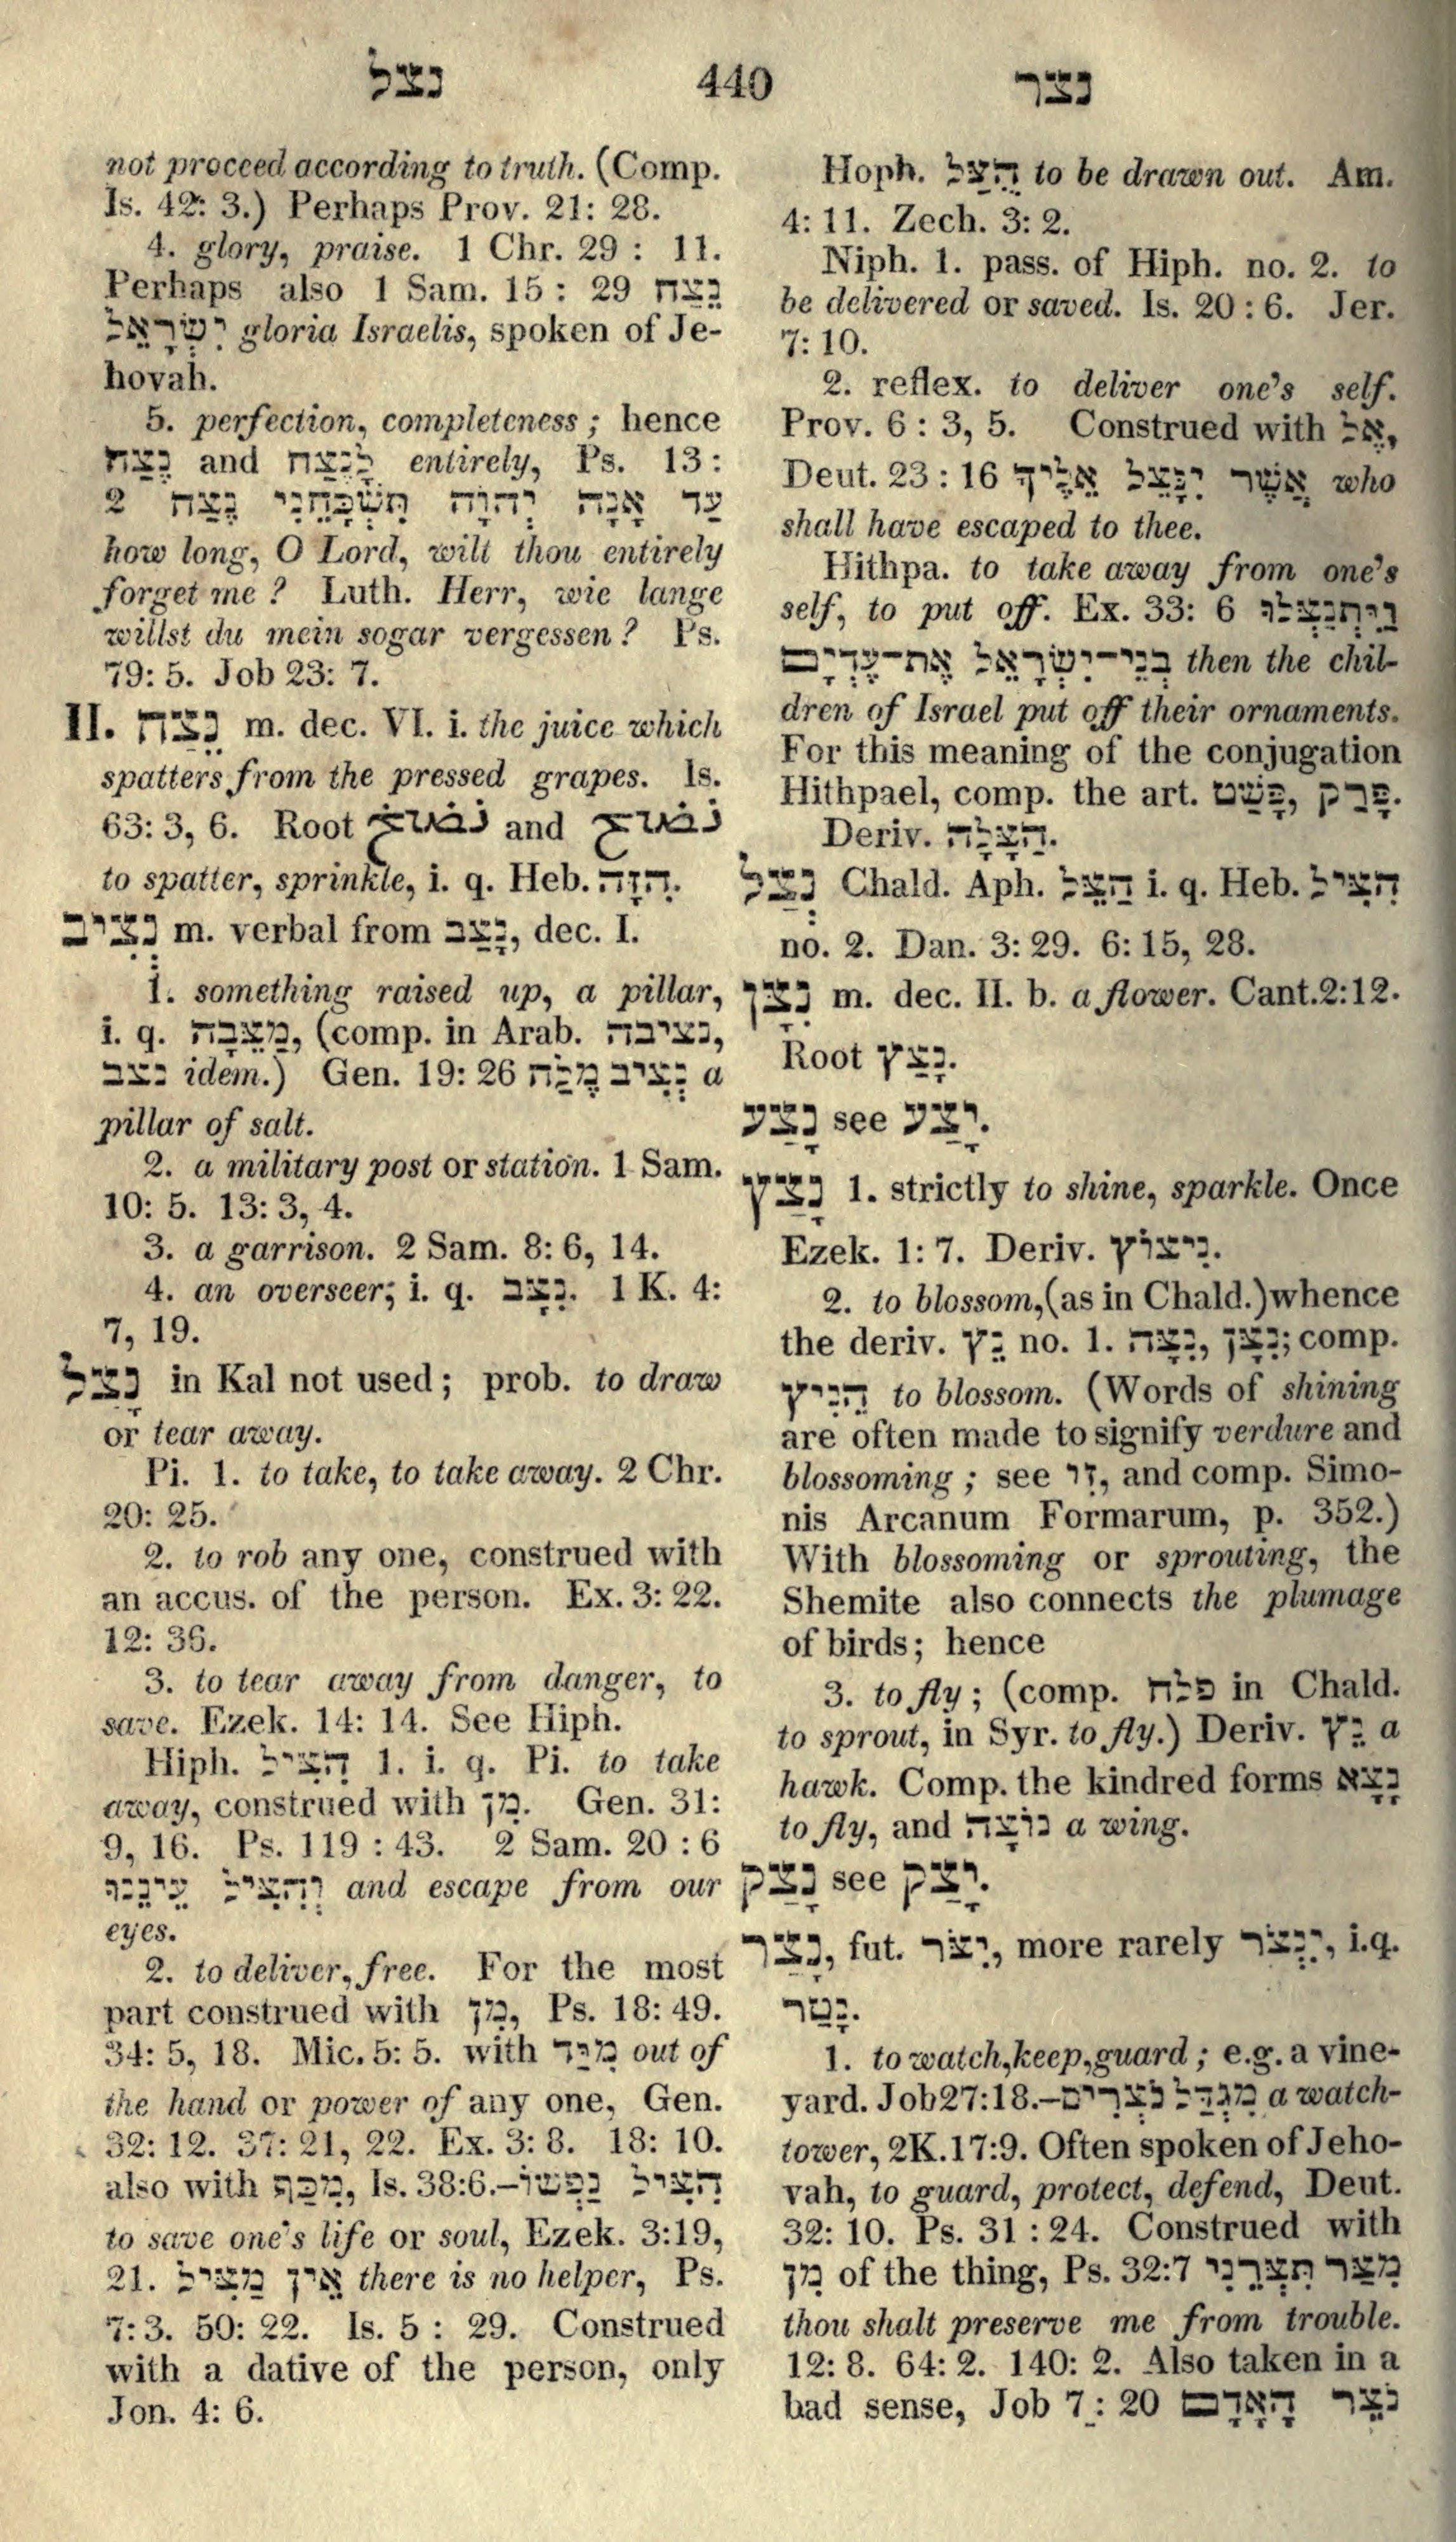 נצל 440 נצר
not proceed according to truth. (Comp.
Is. 42: 3.) Perhaps Prov. 21: 28.
4. glory, praise. 1 Chr. 29 : 11.
Perhaps also 1 Sam. 15 : 29 נֵצַח
יִשְׂרָאֵל gloria Israelis, spoken of Je-
hovah.
5. perfection, completeness ; hence
נֶצַח and לָנֶצַח entirely, Ps. 13 :
2 עַד אָנָה יְהוָֹה תִּשְׁכָּחֵנִי נֶצַח
how long, O Lord, wilt thou entirely
forget me ? Luth. Herr, wie lange
willst du mein sogar vergessen ? Ps.
79: 5. Job 23: 7.
II. נֵצַח m. dec. VI. i. the juice which
spatters from the pressed grapes. Is.
63: 3, 6. Root نضخ and نضح
to spatter, sprinkle, i. q. Heb. הִזָּה.
נְצִיב m. verbal from נָצַב, dec. I.
1. something raised up, a pillar,
i. q. מַצֵּבָה, (comp. in Arab. נציבה,
נצב idem.) Gen. 19: 26 נְצִיב מֶלַח a
pillar of salt.
2. a military post or station. 1 Sam.
10: 5. 13: 3, 4.
3. a garrison. 2 Sam. 8: 6, 14.
4. an overseer; i. q. נִצָּב. 1 K. 4:
7, 19.
נָצַל in Kal not used ; prob. to draw
or tear away.
Pi. 1. to take, to take away. 2 Chr.
20: 25.
2. to rob any one, construed with
an accus. of the person. Ex. 3: 22.
12: 36.
3. to tear away from danger, to
save. Ezek. 14: 14. See Hiph.
Hiph. הִצִּיל 1. i. q. Pi. to take
away, construed with מִן. Gen. 31:
9, 16. Ps. 119 : 43. 2 Sam. 20 : 6
וְהִצִּיל עֵינֵנוּ and escape from our
eyes.
2. to deliver, free. For the most
part construed with מִן, Ps. 18: 49.
34: 5, 18. Mic. 5: 5. with מִיַּד out of
the hand or power of any one, Gen.
32: 12. 37: 21, 22. Ex. 3: 8. 18: 10.
also with מִכַּף, Is. 38:6.—הִצִּיל נַפְשׁוֹ
to save one's life or soul, Ezek. 3:19,
21. אֵין מַצִּיל there is no helper, Ps.
7: 3. 50: 22. Is. 5 : 29. Construed
with a dative of the person, only
Jon. 4: 6.
Hoph. הֻצַּל to be drawn out. Am.
4: 11. Zech. 3: 2.
Niph. 1. pass. of Hiph. no. 2. to
be delivered or saved. Is. 20 : 6. Jer.
7: 10.
2. reflex. to deliver one's self.
Prov. 6 : 3, 5. Construed with אֶל,
Deut. 23 : 16 אֲשֶׁר יִנָּצֵל אֵלֶיךָ who
shall have escaped to thee.
Hithpa. to take away from one's
self, to put off. Ex. 33: 6 וַיִּתְנַצְּלוּ
בְנֵי־יִשְׂרָאֵל אֶת־עֶדְיָם then the chil-
dren of Israel put off their ornaments.
For this meaning of the conjugation
Hithpael, comp. the art. פָּשַׁט, פָּרַק.
Deriv. הַצָּלָה.
נְצַל Chald. Aph. הַצֵּל i. q. Heb. הִצִּיל
no. 2. Dan. 3: 29. 6: 15, 28.
נִצָּן m. dec. II. b. a flower. Cant.2:12.
Root נָצַץ.
נָצַע see יָצַע.
נָצַץ 1. strictly to shine, sparkle. Once
Ezek. 1: 7. Deriv. נִיצוֹץ.
2. to blossom,(as in Chald.)whence
the deriv. נֵץ no. 1. נִצָּה, נִצָּן; comp.
הֵנִיץ to blossom. (Words of shining
are often made to signify verdure and
blossoming ; see זִו, and comp. Simo-
nis Arcanum Formarum, p. 352.)
With blossoming or sprouting, the
Shemite also connects the plumage
of birds ; hence
3. to fly ; (comp. פלח in Chald.
to sprout, in Syr. to fly.) Deriv. נֵץ a
hawk. Comp. the kindred forms נָצָא
to fly, and נוֹצָה a wing.
נָצַק see יָצַק.
נָצַר, fut. יִצֹּר, more rarely יִנְצֹר, i.q.
נָטַר.
1. to watch,keep,guard ; e.g. a vine-
yard. Job27:18.—מִגְדַּל נֹצְרִים a watch-
tower, 2K.17:9. Often spoken of Jeho-
vah, to guard, protect, defend, Deut.
32: 10. Ps. 31 : 24. Construed with
מִן of the thing, Ps. 32:7 מִצַּר תִּצְּרֵנִי
thou shalt preserve me from trouble.
12: 8. 64: 2. 140: 2. Also taken in a
bad sense, Job 7 : 20 נֹצֵר הָאָדָם